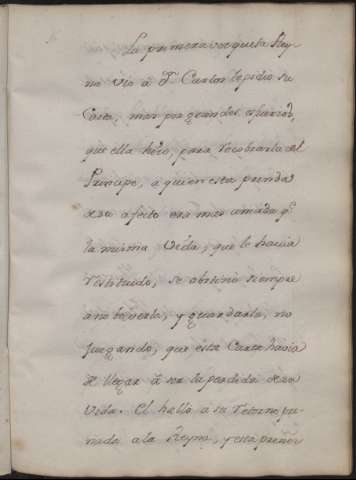 La primera vez que la Rey-
na vio à Dn Carlos le pidio su
Carta, mas por grandes esfuerzos,
que ella hizo, para recobrarla el
Principe, a quien esta prenda
de su afecto era mas amada qe
la misma Vida, que le havia
restituido, se obstinó siempre
a no bolverla, y guardarla, no
juzgando, que esta Carta havia
de llegar à ser la perdida de su
Vida. El halló a su retorno pre-
ñada a la Reyna, y esta preñez